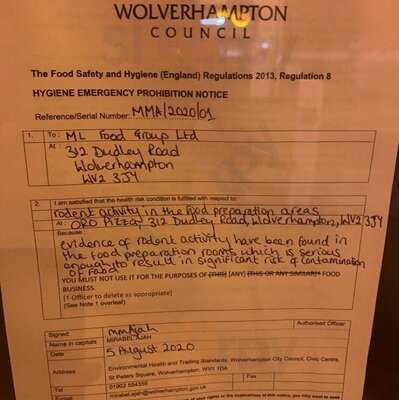 WOLVERHAMPTON
COUNCIL
The Food Safety and Hygiene (England) Regulations 2013, Regulation 8
HYGIENE EMERGENCY PROHIBITION NOTICE
Reference/Serial Number: MMA/2020/01
1. To: ML Food Group Ltd
At: 312 Dudley Road
Wolverhampton
WV2 3JY
2. I am satisfied that the health risk condition is fulfilled with respect to:
rodent activity in the food preparation areas
At: ORO Pizza, 312 Dudley Road, Wolverhampton, WV2 3JY
Because:
evidence of rodent activity have been found in
the food preparation rooms which is serious
enough to result in significant risk of contamination
of food
YOU MUST NOT USE IT FOR THE PURPOSES OF [THIS] [ANY] [THIS OR ANY SIMILAR]* FOOD
BUSINESS.
(* Officer to delete as appropriate)
(See Note 1 overleaf)
Signed mmAjah Authorised Officer
Name in capitals MIRABEL AJAH
Date 5 August 2020
Address Environmental Health and Trading Standards, Wolverhampton City Council, Civic Centre,
St Peters Square, Wolverhampton, WV1 1DA
Tel 01902 Fax
Email mirabel.ajah@wolverhampton.gov.uk